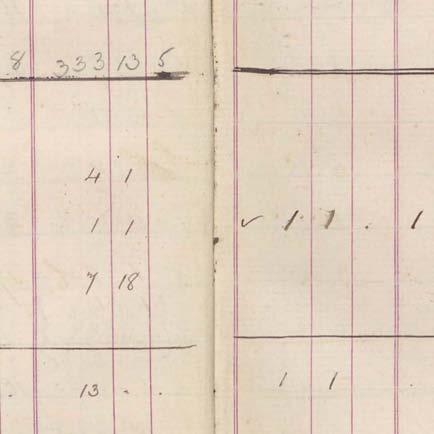 8 333 13 5
4 1
1 1 ✓ 1 1 . 1
7 18
. 13 . . 1 1 .